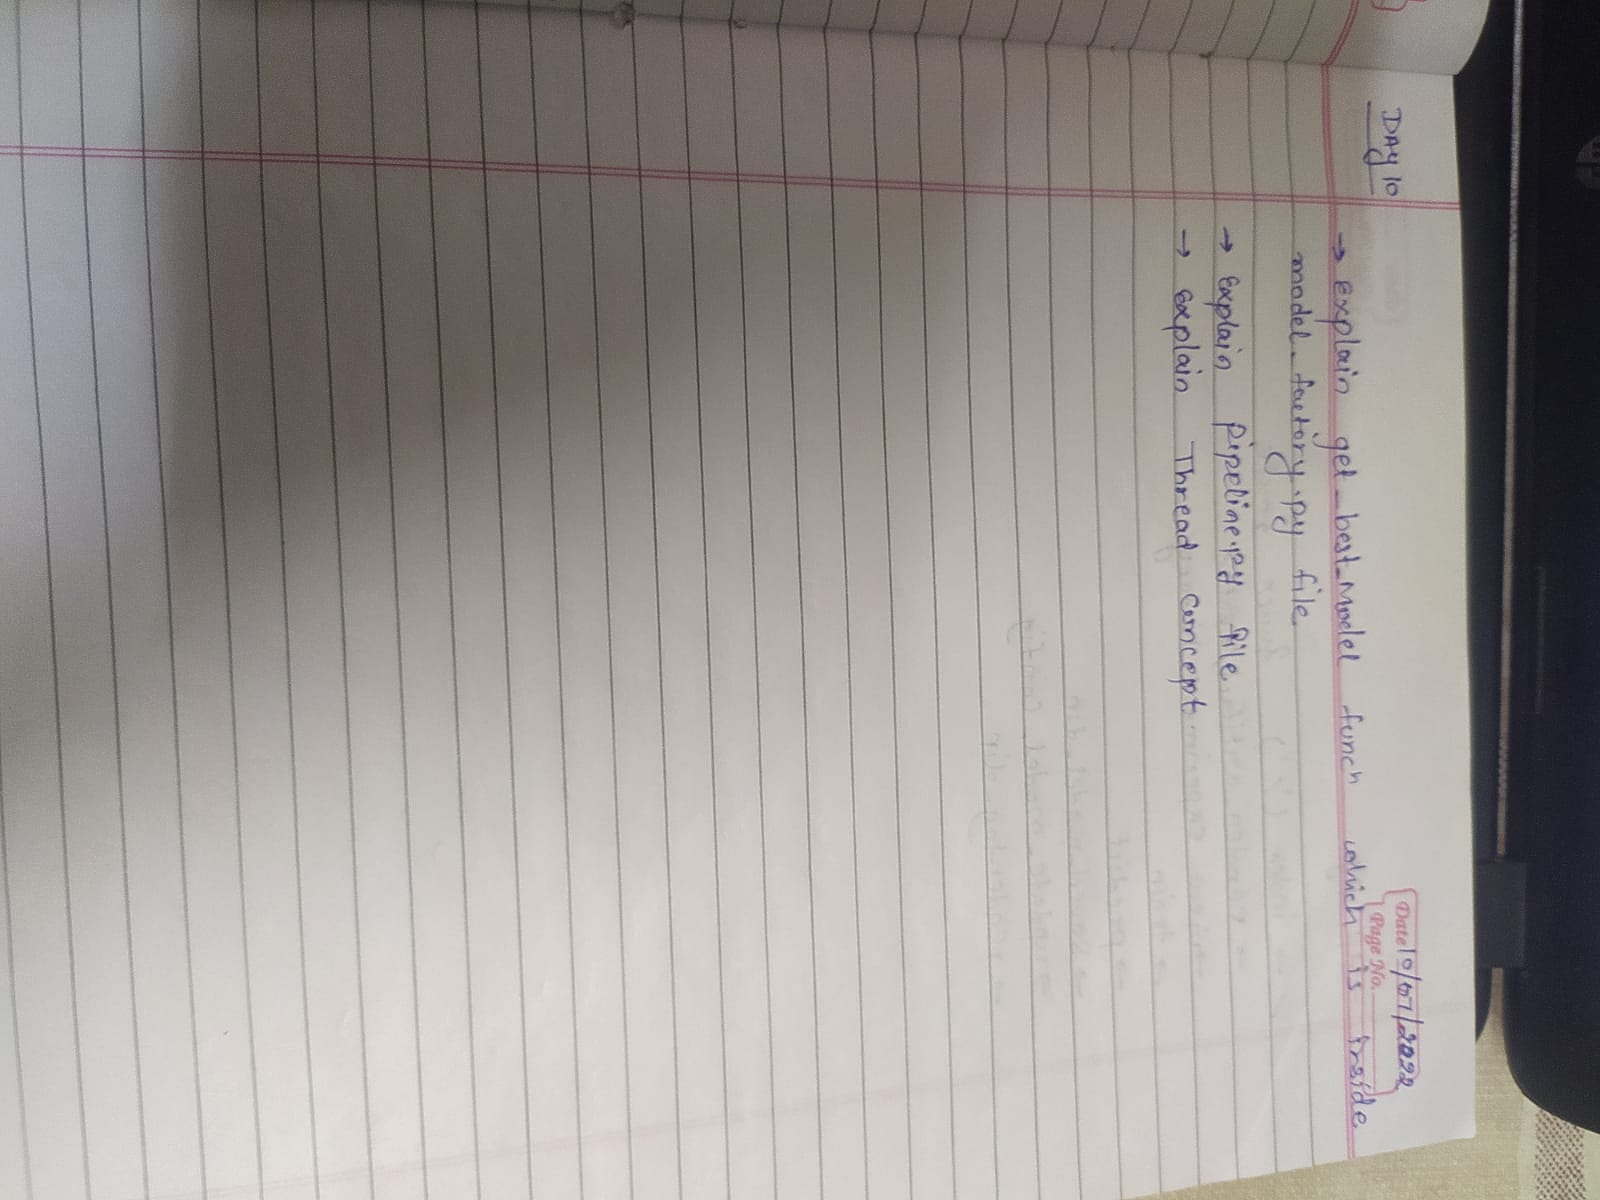 DAY 10
Date 10/07/2022
Page No.
→ Explain get_best_Model funcn which is inside
model_factory.py file
→ Explain Pipeline.py file
→ Explain Thread Concept